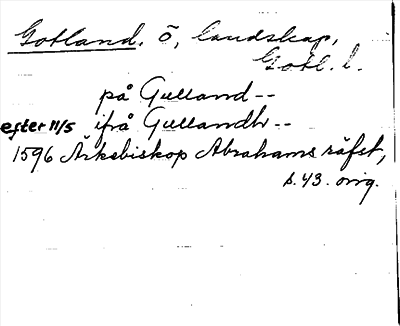 Gotland. ö, landskap,
Gotl. l.
på Gulland--
efter 11/5 ifrå Gullandh--
1596 Ärkebiskop Abrahams räfst,
s. 43. orig.